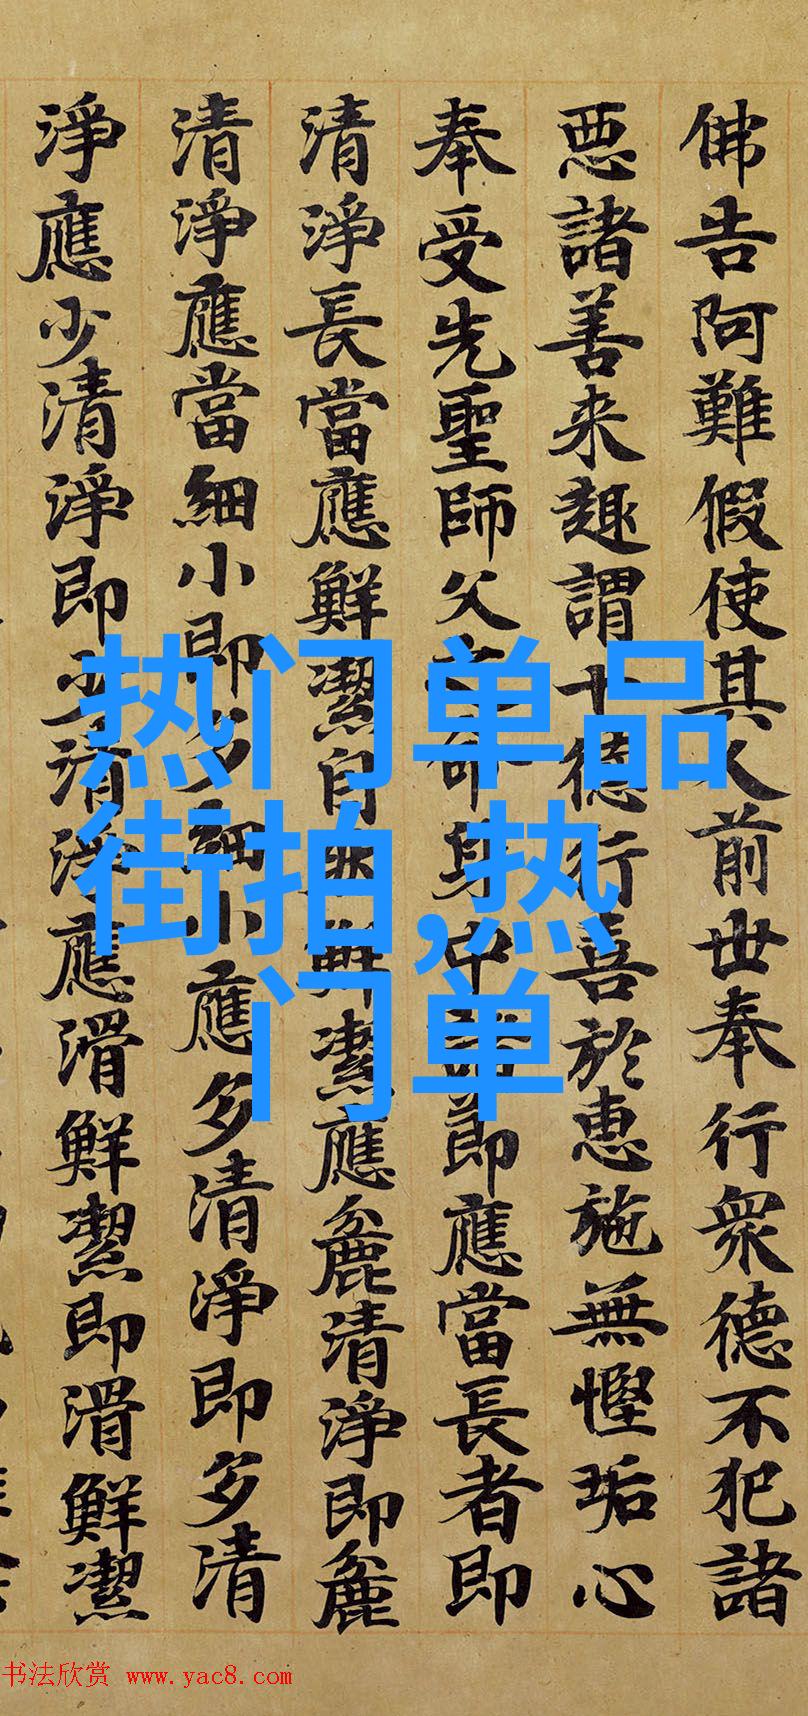 佛告阿難假使其人前世奉行衆德不犯諸
悪諸善来趣謂十德行善於恵施無慳垢心
奉受先聖師父命身中即應當長者即
清淨長當應鮮潔自鮮潔應麁清淨即麁
清淨應當細小即多細小應多清淨即多清
淨應少清淨即少清淨應滑鮮潔即滑鮮潔
热门单品
街拍,热
门单
书法欣赏 www.yac8.com